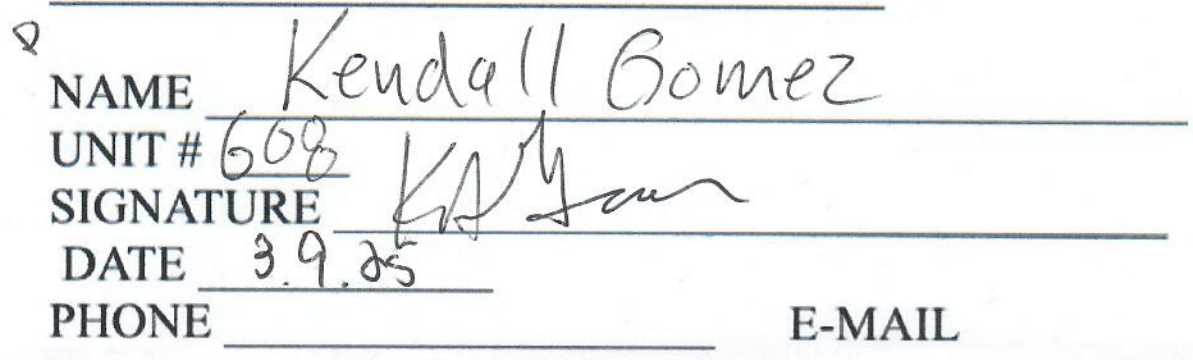 NAME Kendall Gomez
UNIT # 608
SIGNATURE
DATE 3.9.25
PHONE E-MAIL